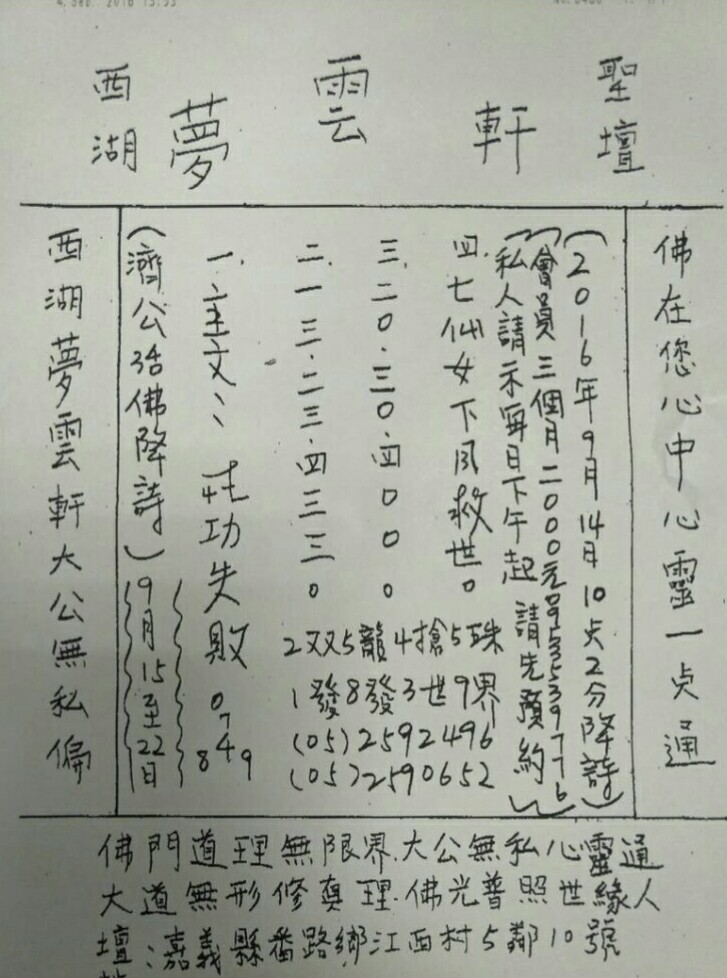 4.Sep. 2016 15:53
西湖 夢雲軒 聖壇
佛在您心中心靈一点通
(2016年9月14日10点2分降詩)
(會員三個月二000元0953539776)
私人請示每日下午起 請先預約
四.七仙女下凡救世。
三.二0.三0.四000
二.一三.二三.四三三。
一.主文:: 功失敗
0749
8
2双5龍4搶5珠
1發8發3世9界
(05)2592496
(05)2590652
(濟公活佛降詩)
9月15至22日
西湖夢雲軒大公無私偏
佛門道理無限界.大公無私心靈通
大道無形修真理.佛光普照世緣人
壇:嘉義縣番路鄉江西村5鄰10號